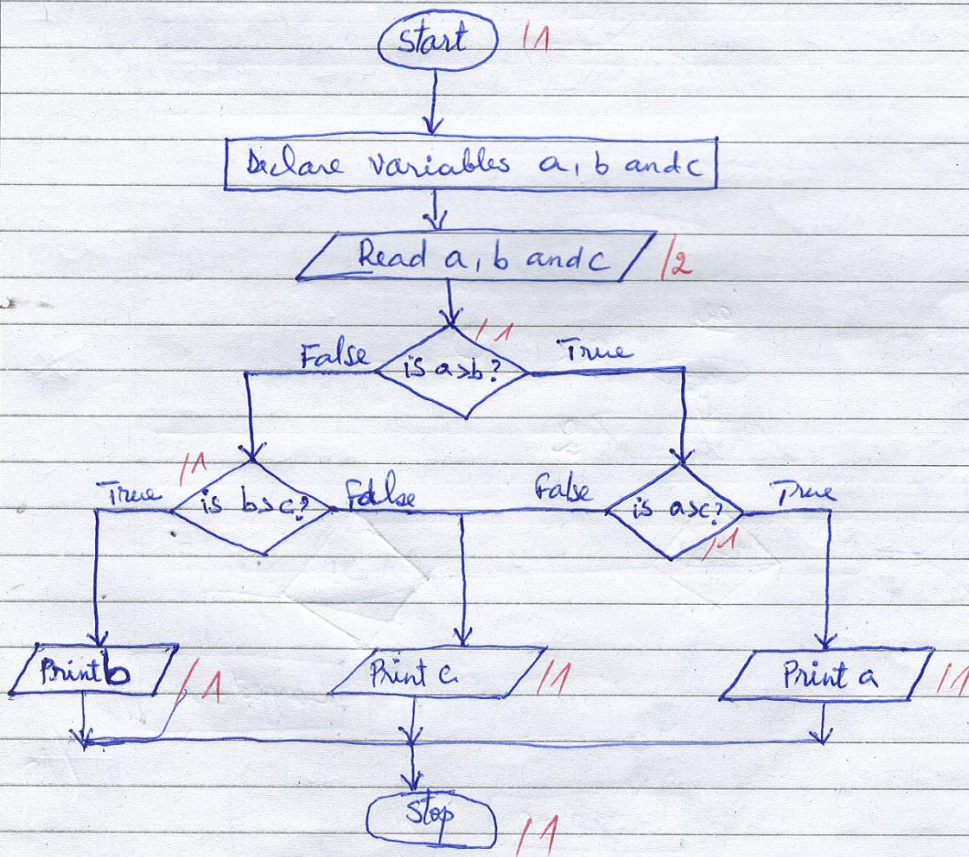 Start /1
Declare variables a, b and c
Read a, b and c /2
/1
False is a>b? True
/1
True is b>c? False False is a>c? True
/1
Print b /1 Print c /1 Print a /1
Stop /1